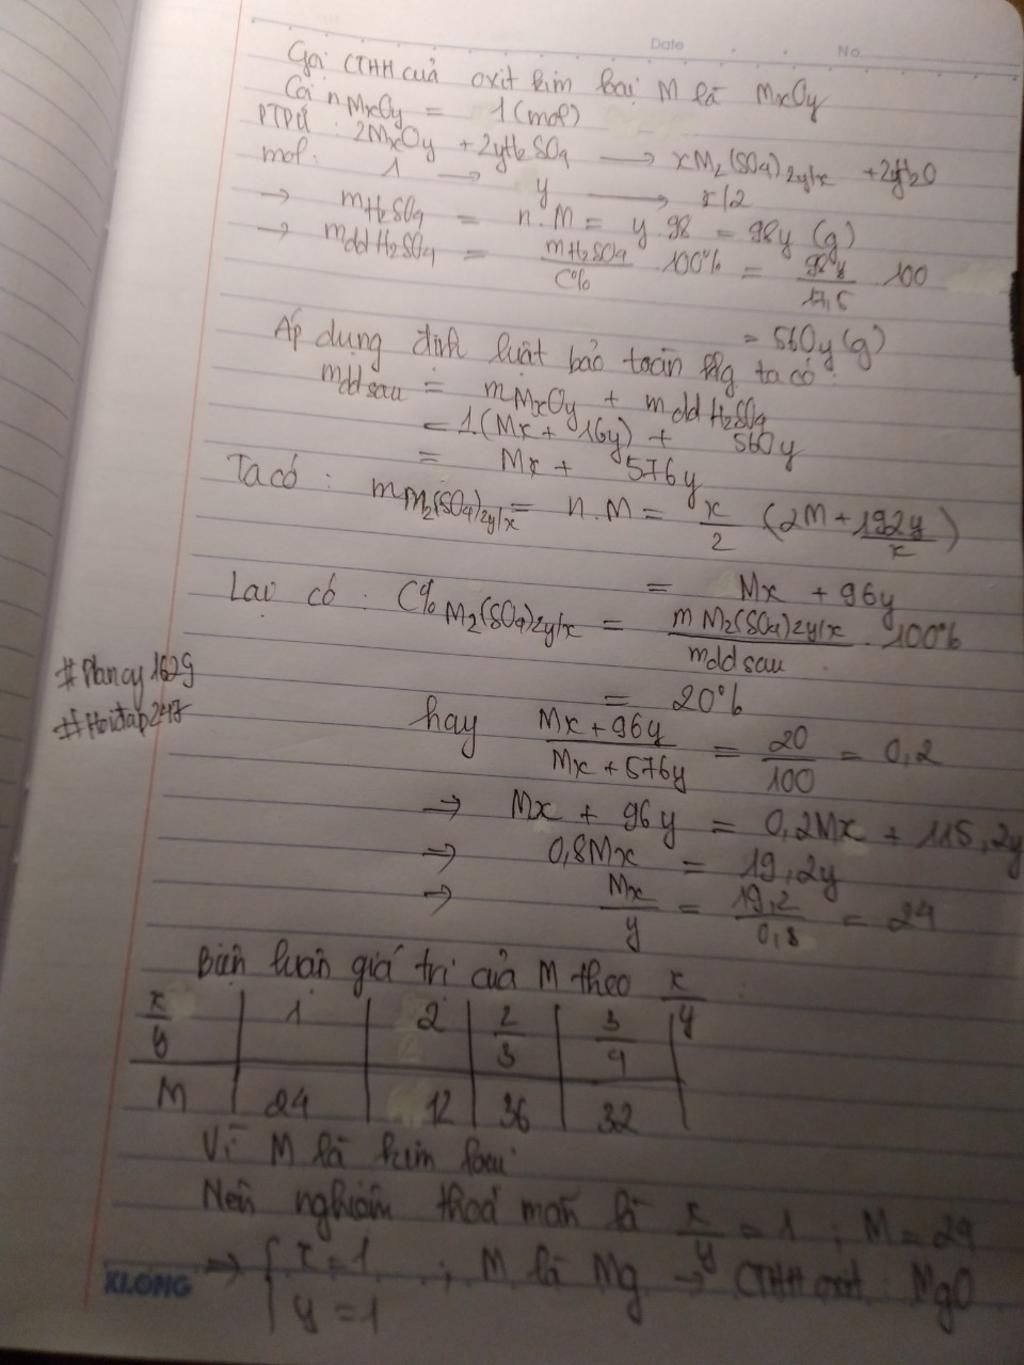 Date No.
Gọi CTHH của oxit kim loại M là MxOy
Coi nMxOy = 1 (mol)
PTPƯ : 2MxOy + 2yH2SO4 → xM2(SO4)2y/x + 2yH2O
mol: 1 → y → x/2
→ mH2SO4 = n.M = y.98 = 98y (g)
→ mddH2SO4 = mH2SO4/C% . 100% = 98y/17,5 . 100
= 560y (g)
Áp dụng định luật bảo toàn ta có :
mdd sau = mMxOy + mddH2SO4
= 1.(Mx + 16y) + 560y
= Mx + 576y
Ta có : mM2(SO4)2y/x = n.M = x/2 (2M + 192y/x)
= Mx + 96y
Lại có : C%M2(SO4)2y/x = mM2(SO4)2y/x / mdd sau . 100%
= 20%
#Nancy1629
#Hoidap247
hay Mx + 96y / Mx + 576y = 20/100 = 0,2
⇒ Mx + 96y = 0,2Mx + 115,2y
⇒ 0,8Mx = 19,2y
⇒ Mx/y = 19,2/0,8 = 24
Biện luận giá trị của M theo x/y :
x/y | 1 | 2 | 2/3 | 3/4
M | 24 | 12 | 36 | 32
Vì M là kim loại
Nên nghiệm thoả mãn là x/y = 1 ; M = 24
⇒ { x = 1 ; M là Mg → CTHH oxit : MgO
y = 1
KLONG